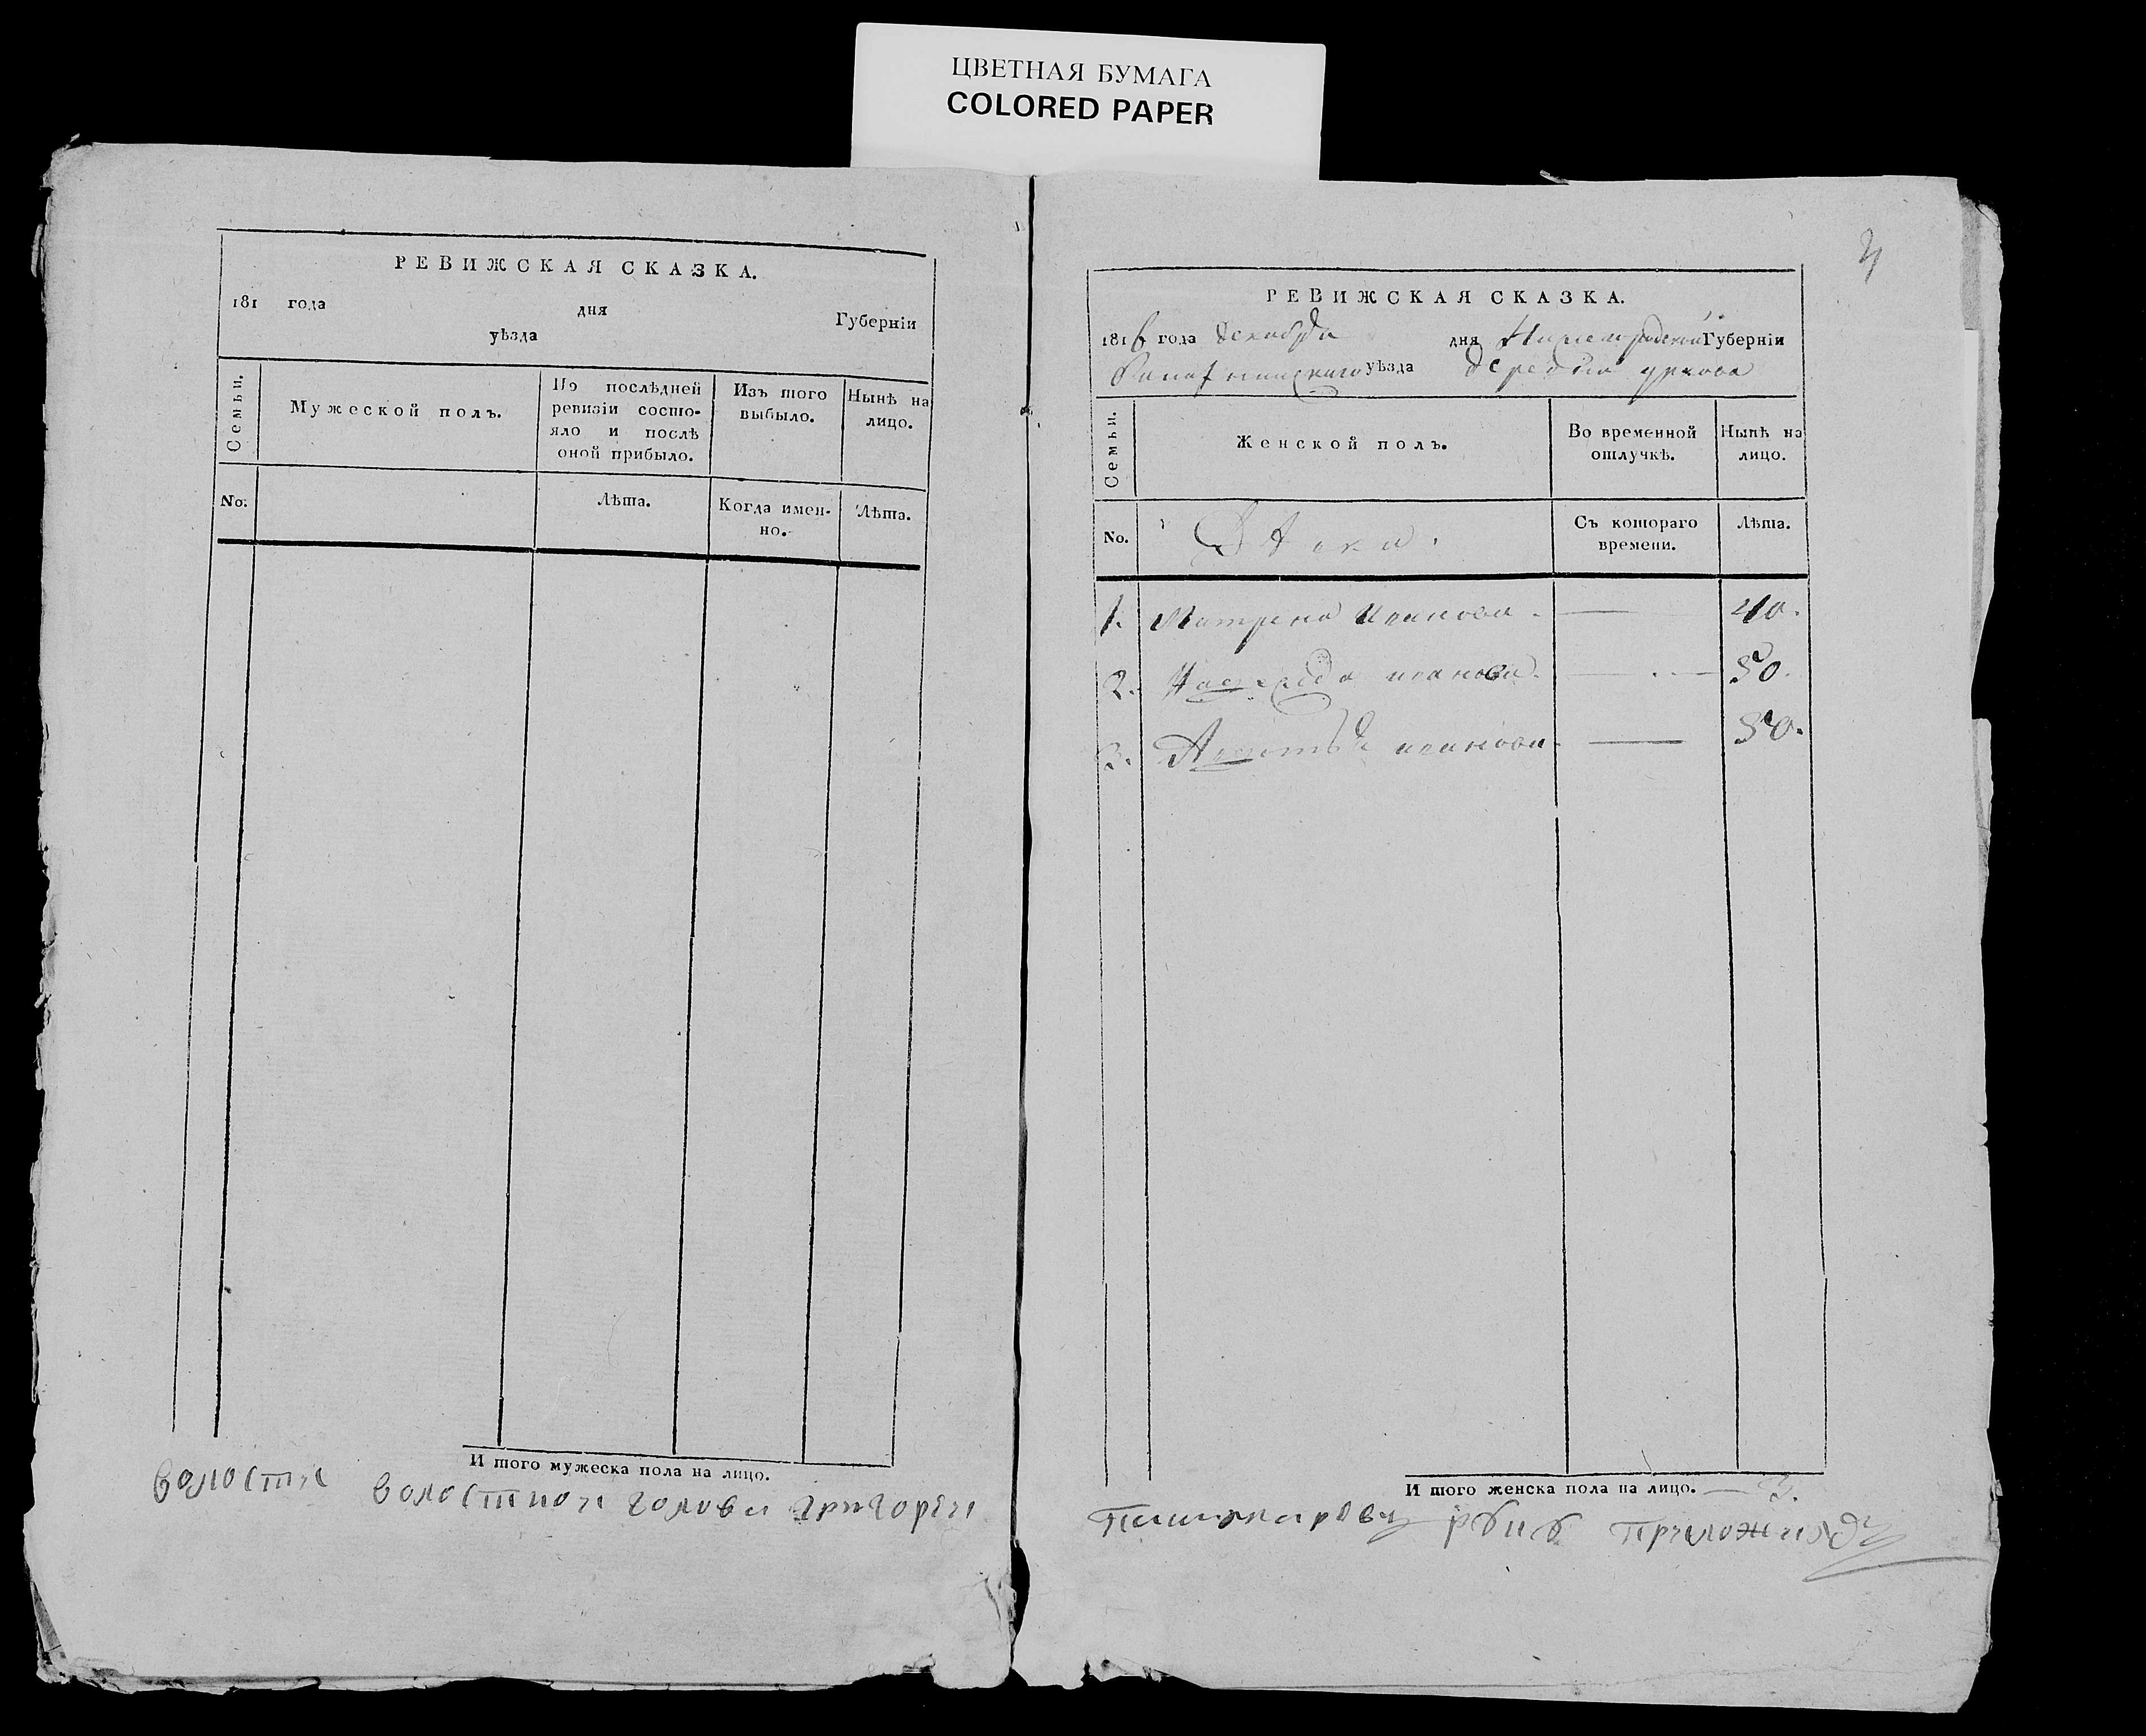 ЦВЕТНАЯ БУМАГА
COLORED PAPER
РЕВИЖСКАЯ СКАЗКА.
181 года дня Губерніи
уѣзда
Семьи.
Мужеской полъ.
По послѣдней ревизіи состояло и послѣ оной прибыло.
Изъ того выбыло.
Нынѣ на лицо.
No.
Лѣта.
Когда именно.
Лѣта.
И того мужеска пола на лицо.
волостной головы григорей
3
РЕВИЖСКАЯ СКАЗКА.
1816 года декабря дня Нижегородской Губерніи
уѣзда деревни
Семьи.
Женской полъ.
Во временной отлучкѣ.
Нынѣ на лицо.
No.
Съ котораго времени.
Лѣта.
1. Матрена Иванова. 40.
2. иванова. 50.
3. иванова. 50.
И того женска пола на лицо. 3.
приложил